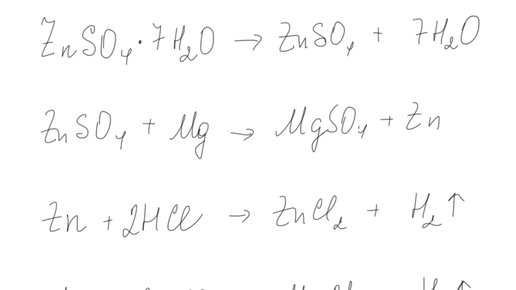 ZnSO₄·7H₂O → ZnSO₄ + 7H₂O
ZnSO₄ + Mg → MgSO₄ + Zn
Zn + 2HCl → ZnCl₂ + H₂↑